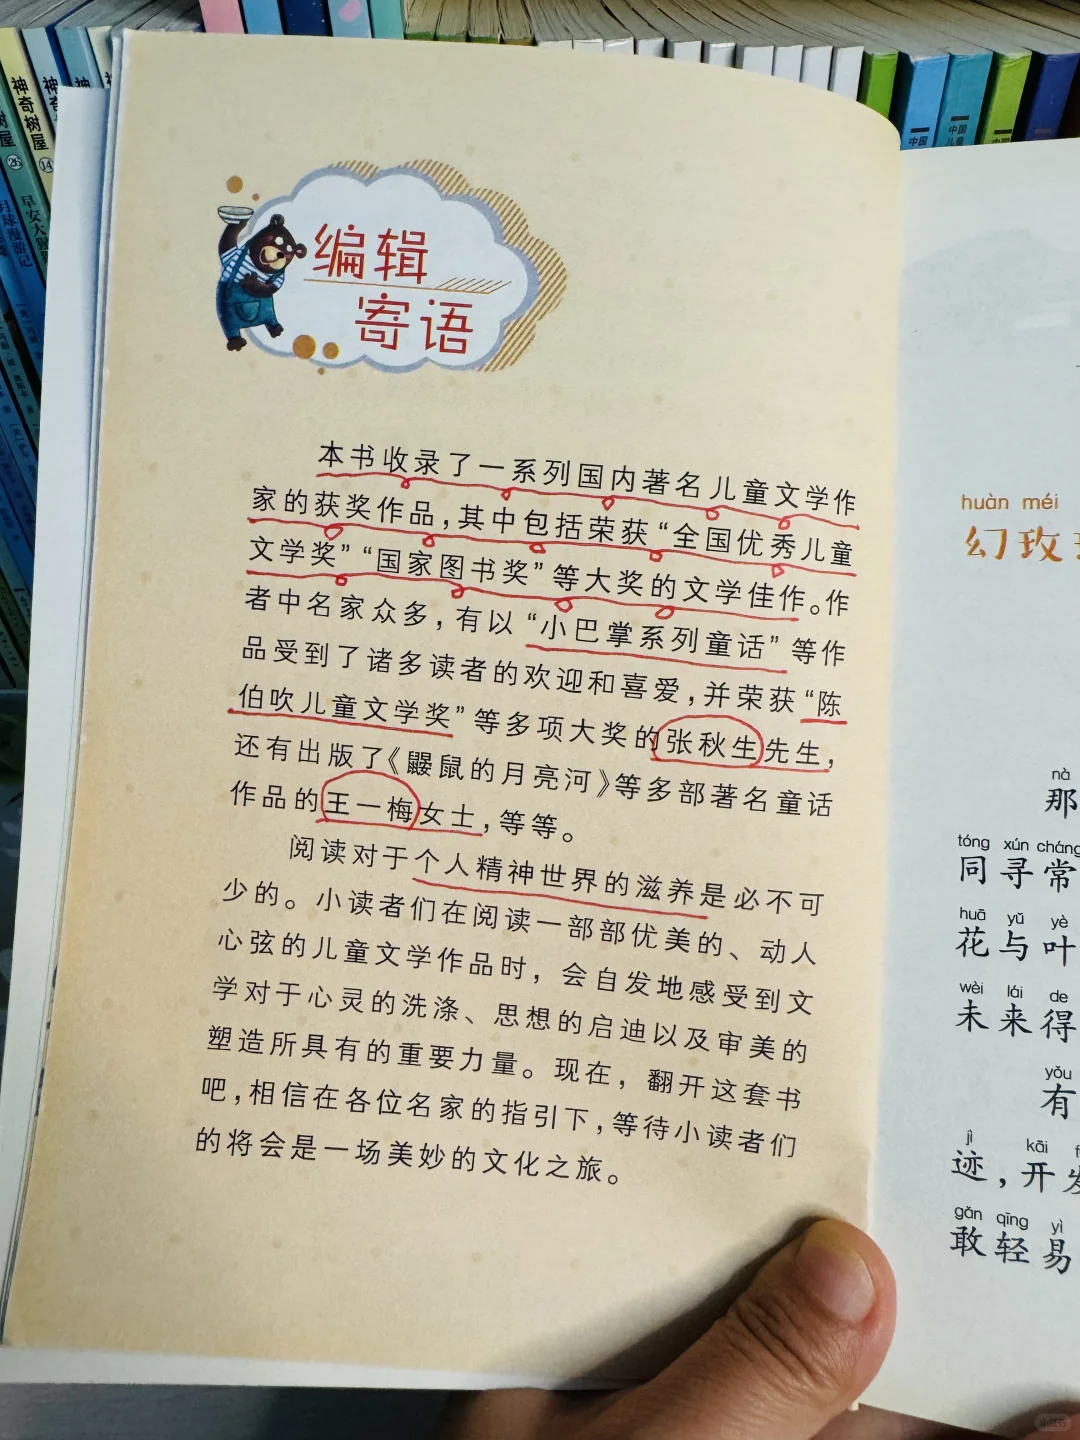 神奇树屋
26
神奇树屋
14
神奇
神
月球漫游记
早安大猩猩
中国
中国
儿童
中国
编辑
寄语
本书收录了一系列国内著名儿童文学作
家的获奖作品，其中包括荣获“全国优秀儿童
文学奖”“国家图书奖”等大奖的文学佳作。作
者中名家众多，有以“小巴掌系列童话”等作
品受到了诸多读者的欢迎和喜爱，并荣获“陈
伯吹儿童文学奖”等多项大奖的张秋生先生，
还有出版了《鼹鼠的月亮河》等多部著名童话
作品的王一梅女士，等等。
阅读对于个人精神世界的滋养是必不可
少的。小读者们在阅读一部部优美的、动人
心弦的儿童文学作品时，会自发地感受到文
学对于心灵的洗涤、思想的启迪以及审美的
塑造所具有的重要力量。现在，翻开这套书
吧，相信在各位名家的指引下，等待小读者们
的将会是一场美妙的文化之旅。
huàn méi
幻玫
nà
那
tóng xún cháng
同寻常
huā yǔ yè
花与叶
wèi lái de
未来得
yǒu
有
jì kāi f
迹，开发
gǎn qīng yì
敢轻易
小红书